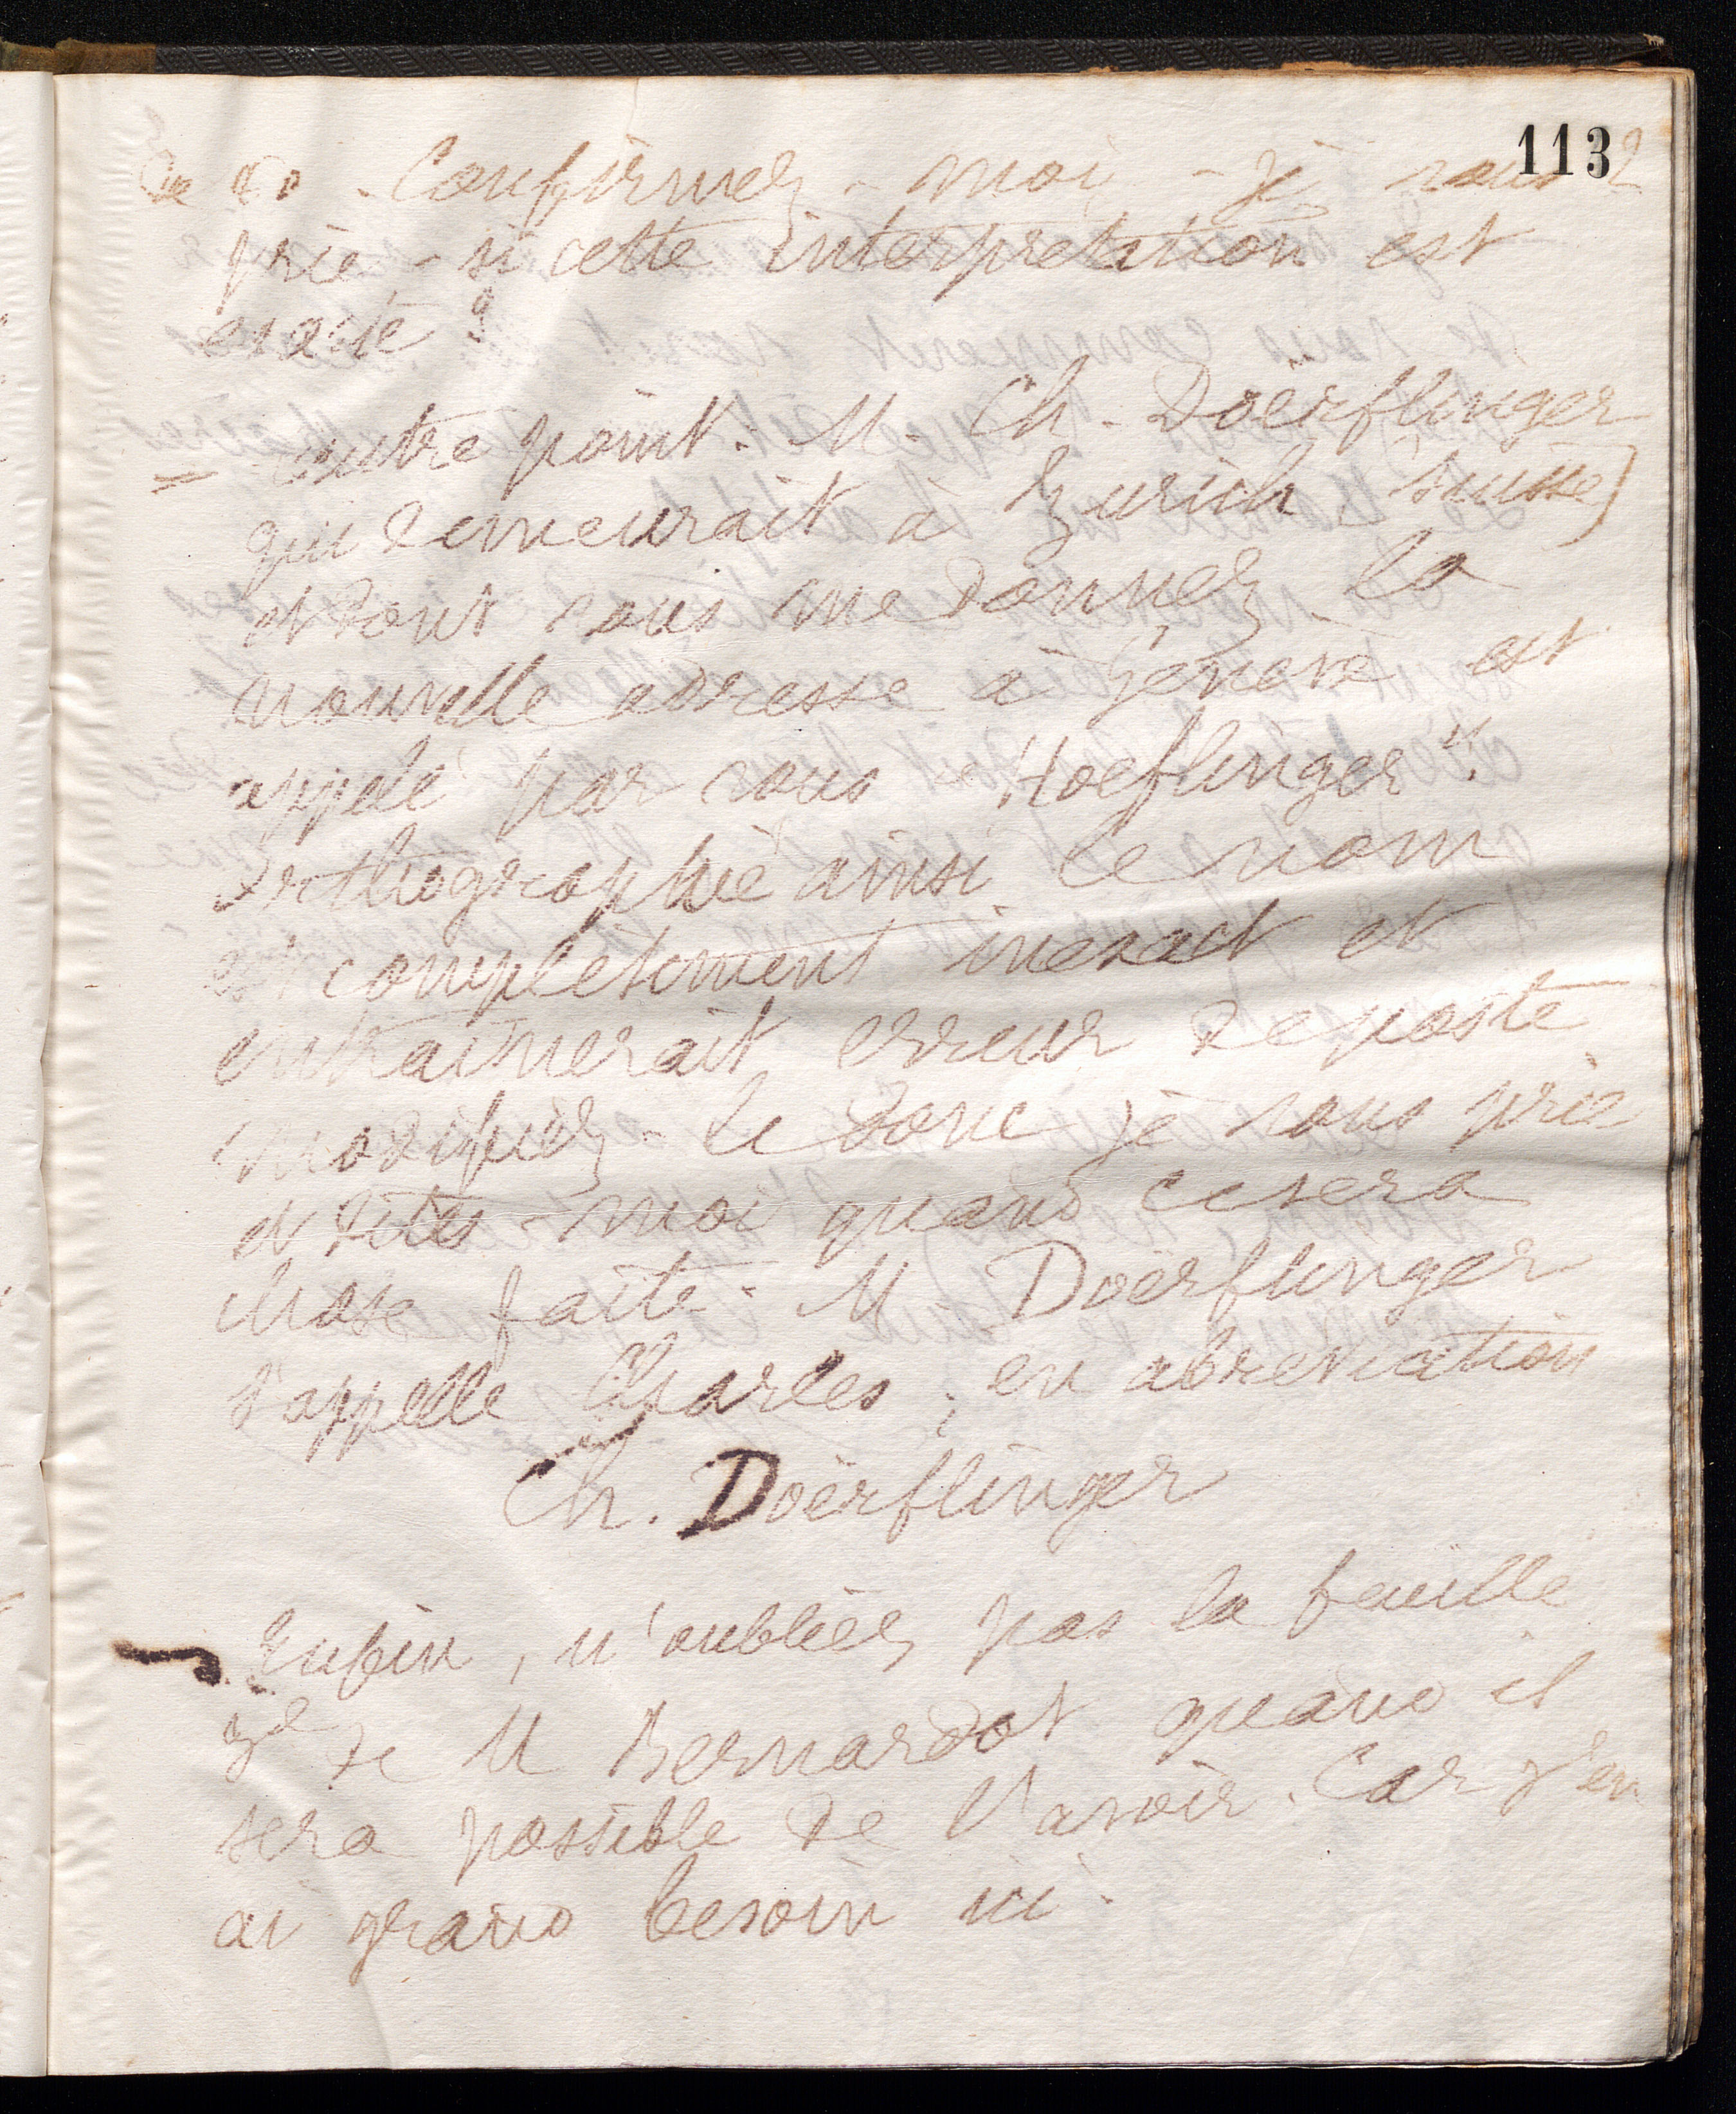 113
2
- Confirmez - moi - je vous
prie, - si cette interpretation est
exacte ?
= autre point. M. Ch. Doërflinger
qui demeurait à Zurich (Suisse)
et dont vous me donnez la
nouvelle adresse à Genève est
appelé par vous "Hoeflinger".
Orthographié ainsi le nom
est complètement inexact et
entrainerait erreur de poste
modifiez - le donc je vous prie
et dites - moi quand ce sera
chose faite. M. Doërflinger
s'appelle Charles ; en abreviation
Ch. Doërflinger
Enfin, n'oubliez pas la feuille
de M Bernardot quand il
sera possible de l'avoir. Car j'en
ai grand besoin ici.